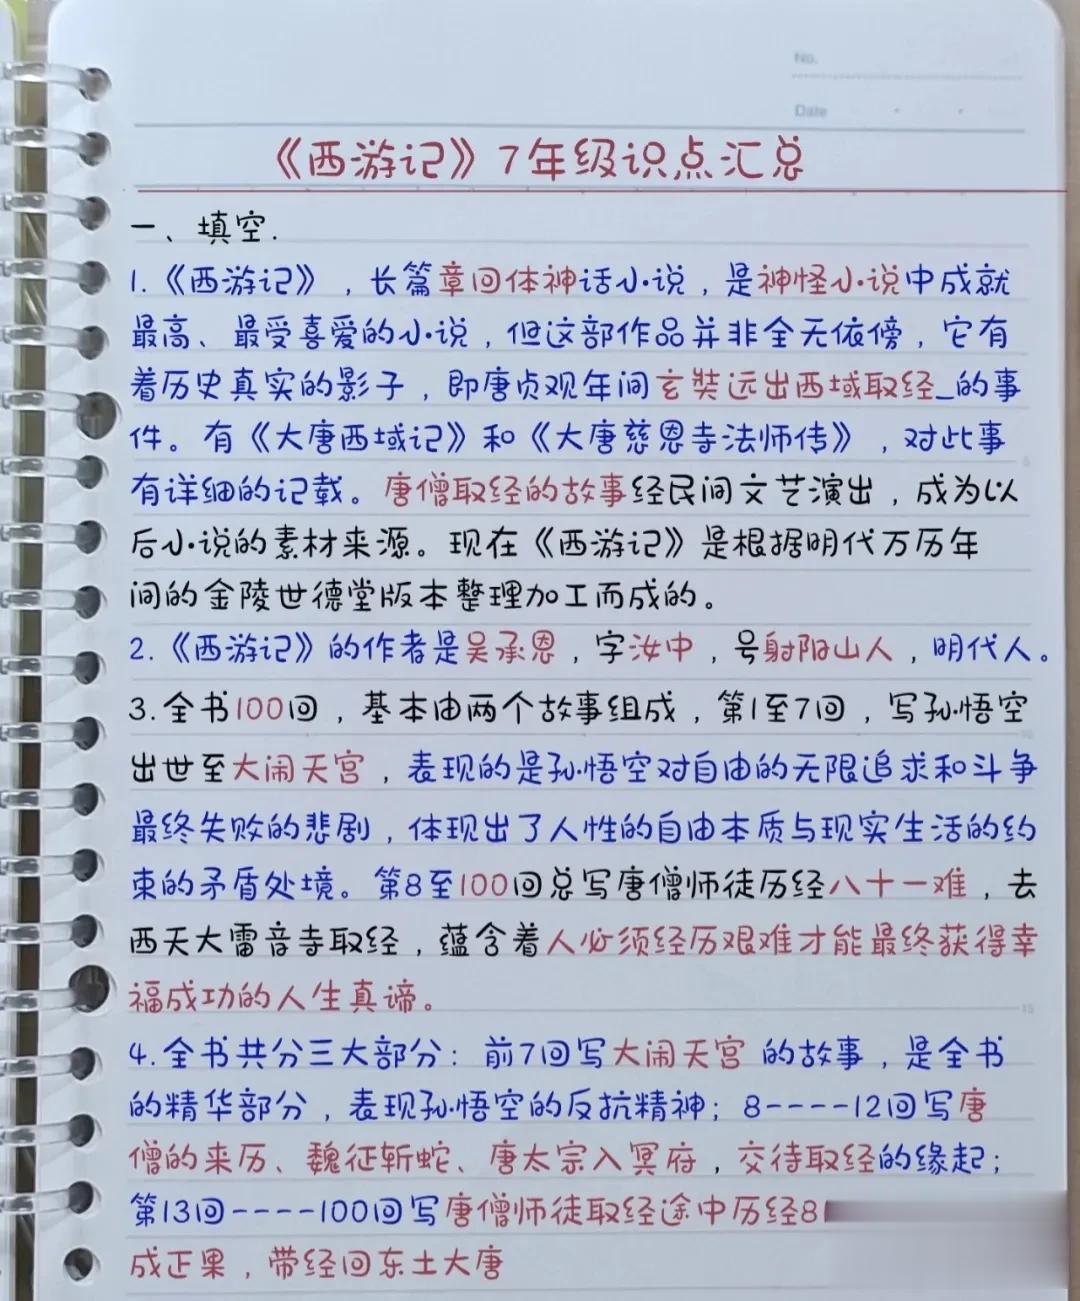 No.
Date
《西游记》7年级识点汇总
一、填空.
1.《西游记》，长篇章回体神话小说，是神怪小说中成就
最高、最受喜爱的小说，但这部作品并非全无依傍，它有
着历史真实的影子，即唐贞观年间玄奘远出西域取经_的事
件。有《大唐西域记》和《大唐慈恩寺法师传》，对此事
有详细的记载。唐僧取经的故事经民间文艺演出，成为以
后小说的素材来源。现在《西游记》是根据明代万历年
间的金陵世德堂版本整理加工而成的。
2.《西游记》的作者是吴承恩，字汝中，号射阳山人，明代人。
3.全书100回，基本由两个故事组成，第1至7回，写孙悟空
出世至大闹天宫，表现的是孙悟空对自由的无限追求和斗争
最终失败的悲剧，体现出了人性的自由本质与现实生活的约
束的矛盾处境。第8至100回总写唐僧师徒历经八十一难，去
西天大雷音寺取经，蕴含着人必须经历艰难才能最终获得幸
福成功的人生真谛。
4.全书共分三大部分：前7回写大闹天宫的故事，是全书
的精华部分，表现孙悟空的反抗精神；8----12回写唐
僧的来历、魏征斩蛇、唐太宗入冥府，交待取经的缘起；
第13回----100回写唐僧师徒取经途中历经8
成正果，带经回东土大唐